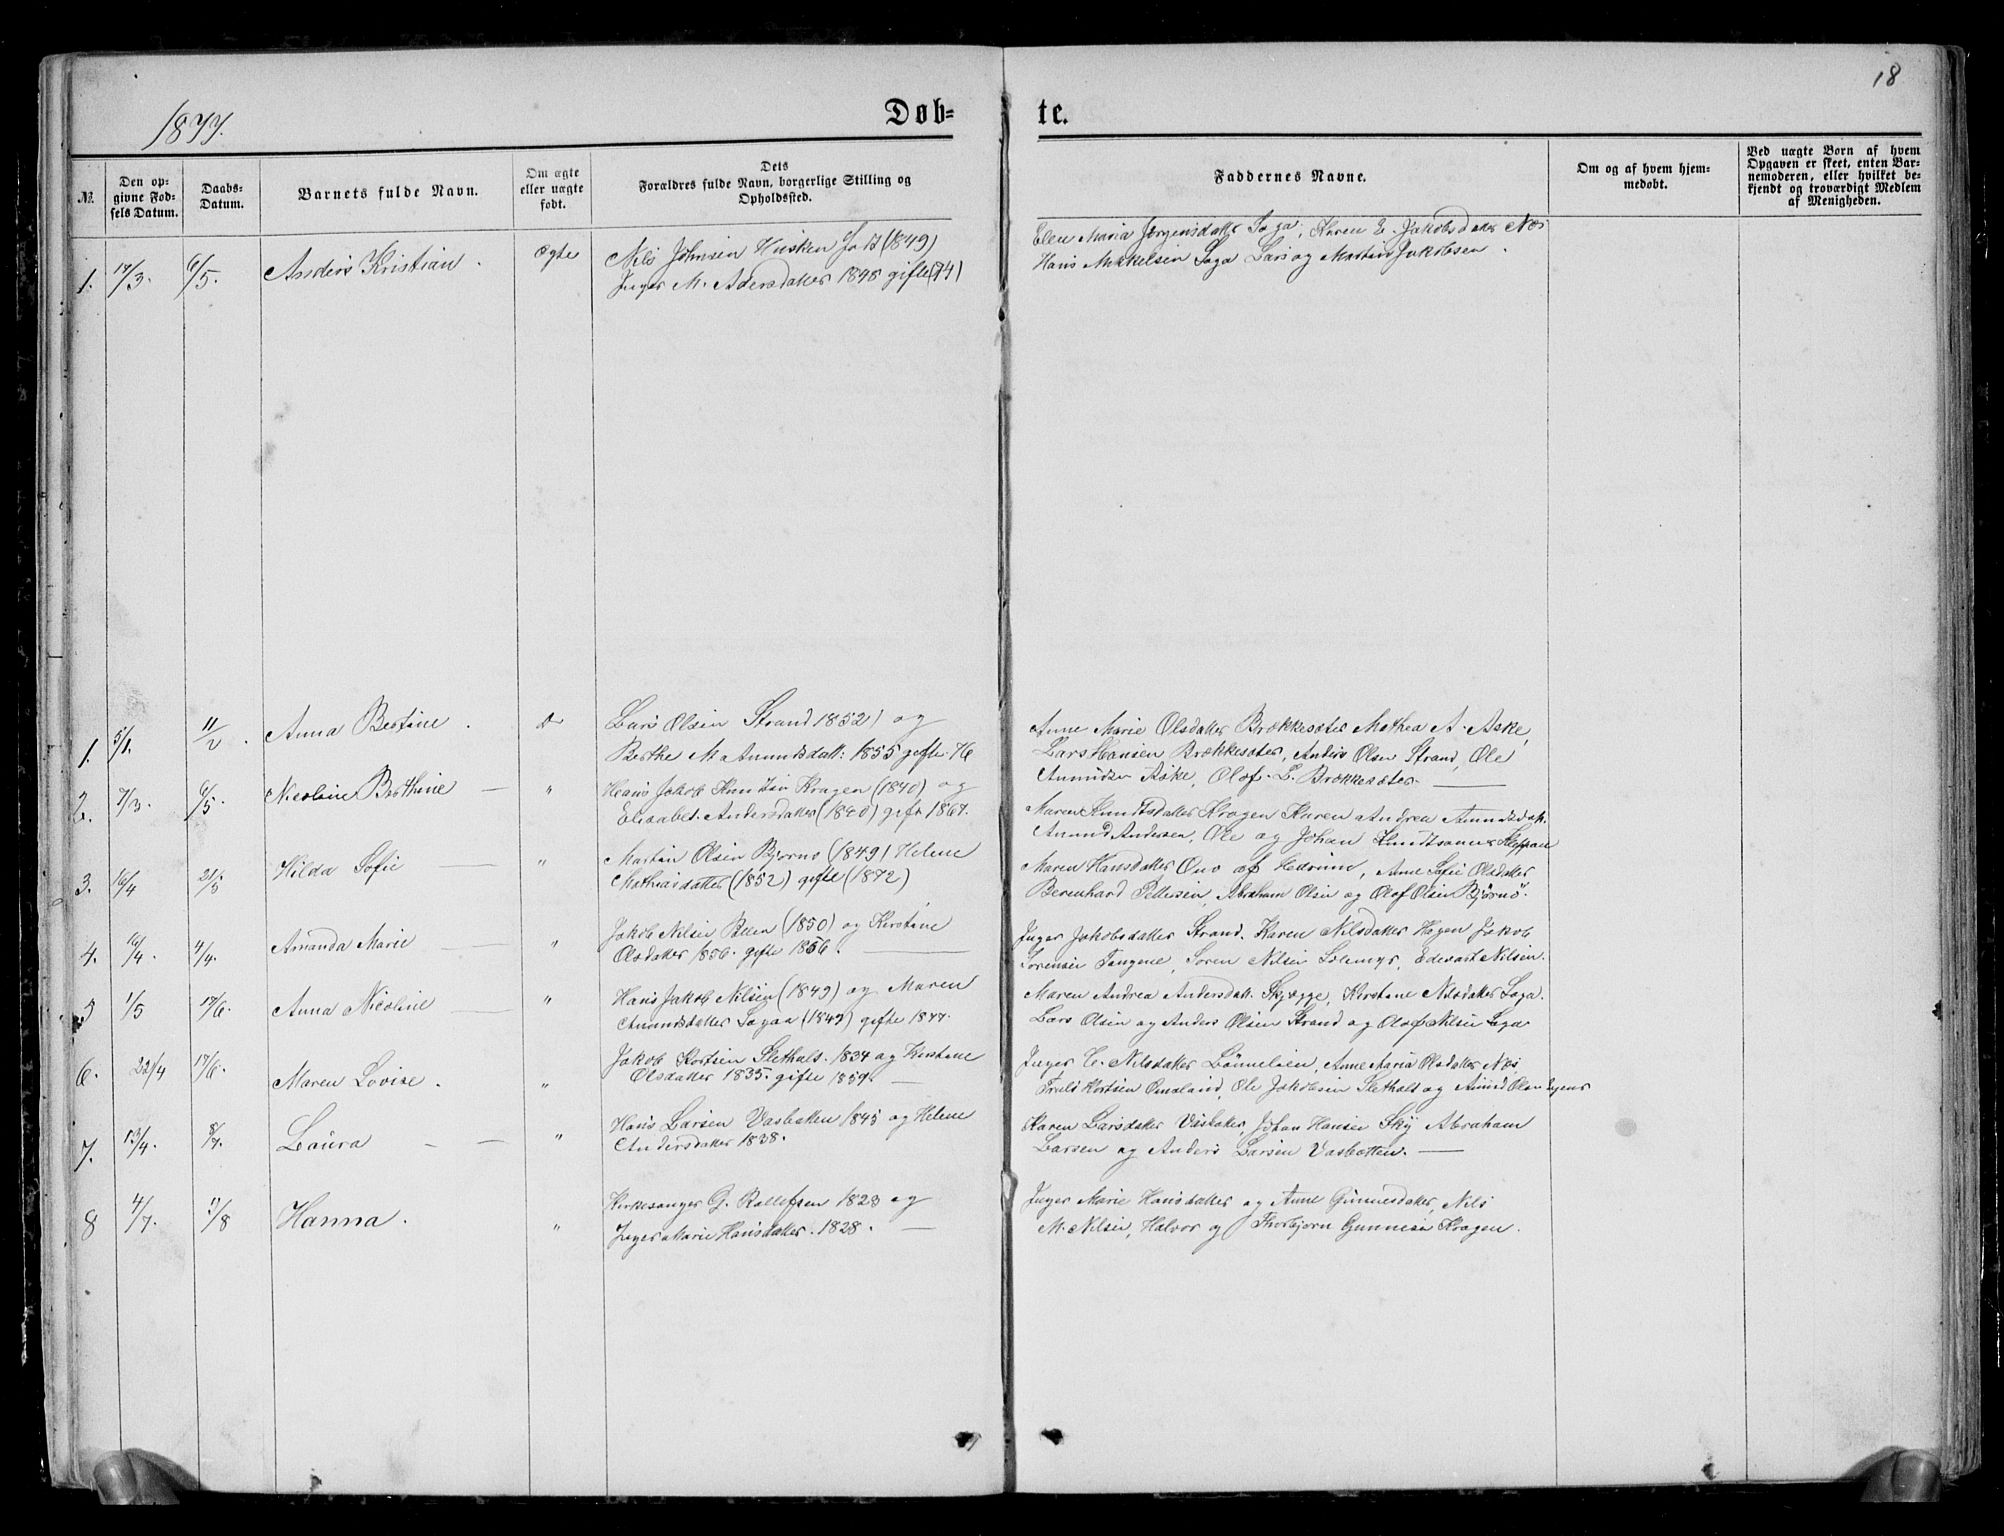 18
1877.
Døb-
te.
№.
Den op-
givne Fød-
sels Datum.
Daabs-
Datum.
Barnets fulde Navn.
Om ægte
eller uægte
født.
Dets
Forældres fulde Navn, borgerlige Stilling og
Opholdssted.
Faddernes Navne.
Om og af hvem hjem-
medøbt.
Ved uægte Børn af hvem
Opgaven er skeet, enten Bar-
nemoderen, eller hvilket be-
kjendt og troværdigt Medlem
af Menigheden.
1. 17/3. 6/5. Anders Kristian. Ægte Nils Johnsen (1849)
Inger M. Adersdatter 1848 gifte (74)
Elen Maria Jørgensdatter Saga, Karen E. Jakobsdatter Næs
Hans Mikkelsen Saga Lars og Martin Jakobsen.
1. 5/1. 11/2. Anna Bertine. Do Lars Olsen Strand 1852) og
Berthe M. Amundsdatt: 1855 gifte 76
Anne Marie Olsdatter Brækkesæter Mathea A. Aske,
Lars Hansen Brækkesæter, Anders Olsen Strand, Ole
Amundsen Aske, Olof L. Brækkesæter
2. 7/3. 6/5. Nicoline Berthine — " Hans Jakob Knutsen Kragen (1840) og
Elisabet Andersdatter (1840) gift 1867.
Maren Knudtsdatter Kragen Karen Andrea Amundsdatt.
Amund Andersen, Ole og Johan Knudtsønner
3. 16/4 21/5 Hilda Sofie — " Martin Olsen Bjørnø (1849) Helene
Mathiasdatter (1852) gifte (1872)
Maren Hansdatter Ono af Hedrum, Anne Sofie Olsdatter
Berenhard Pettersen, Abraham Olsen og Olof Olsen Bjørnø.
4. 16/4. 4/4. Amanda Marie — " Jakob Nilsen (1850) og Kirstine
Olsdatter 1856. gifte 1856. —
Inger Jakobsdatter Strand. Karen Nilsdatter Hagen Jakob
Sørensen Tangene, Søren Nilsen Solemyr, Edevart Nilsen.
5 1/5 17/6. Anna Nicoline — " Hans Jakob Nilsen (1849) og Maren
Amundsdatter Sagaa (1849) gifte 1877.
Maren Andrea Andersdatt. Skjegge, Kirstine Nilsdatter Saga.
Lars Olsen og Anders Olsen Strand og Olof Nilsen Saga
6. 22/4 17/6. Maren Lovise. " Jakob Kortsen Slethalt. 1834 og Kirstine
Olsdatter 1835. gifte 1859. —
Inger E. Nilsdatter Anne Maria Olsdatter Næs,
Truls Kortsen Omsland, Ole Jakobsen Slethalt og Amund Olsen
7. 13/4. 8/7. Laura — — " Hans Larsen Vasbotten 1845 og Helene
Andersdatter 1838.
Karen Larsdatter Johan Hansen Sky Abraham
Larsen og Anders Larsen Vasbotten. —
8 4/7. 1/8 Hanna. " Kirkesanger G. Rollefsen 1823 og
Inger Marie Hansdatter. 1828. —
Inger Marie Hansdatter og Anne Gunnesdatter, Nils
M. Nilsen, Halvor og Thorbjørn Gunnesen Kragen.